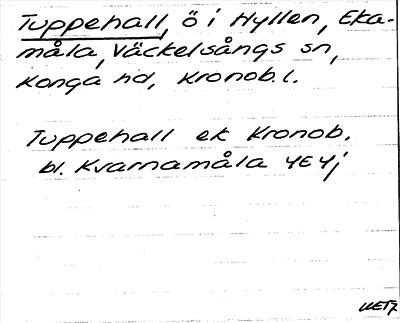 Tuppehall, ö i Hyllen, Eka-
måla, Väckelsångs sn,
Konga hd, Kronob. l.
Tuppehall ek Kronob.
bl. Kvarnamåla 4E4j